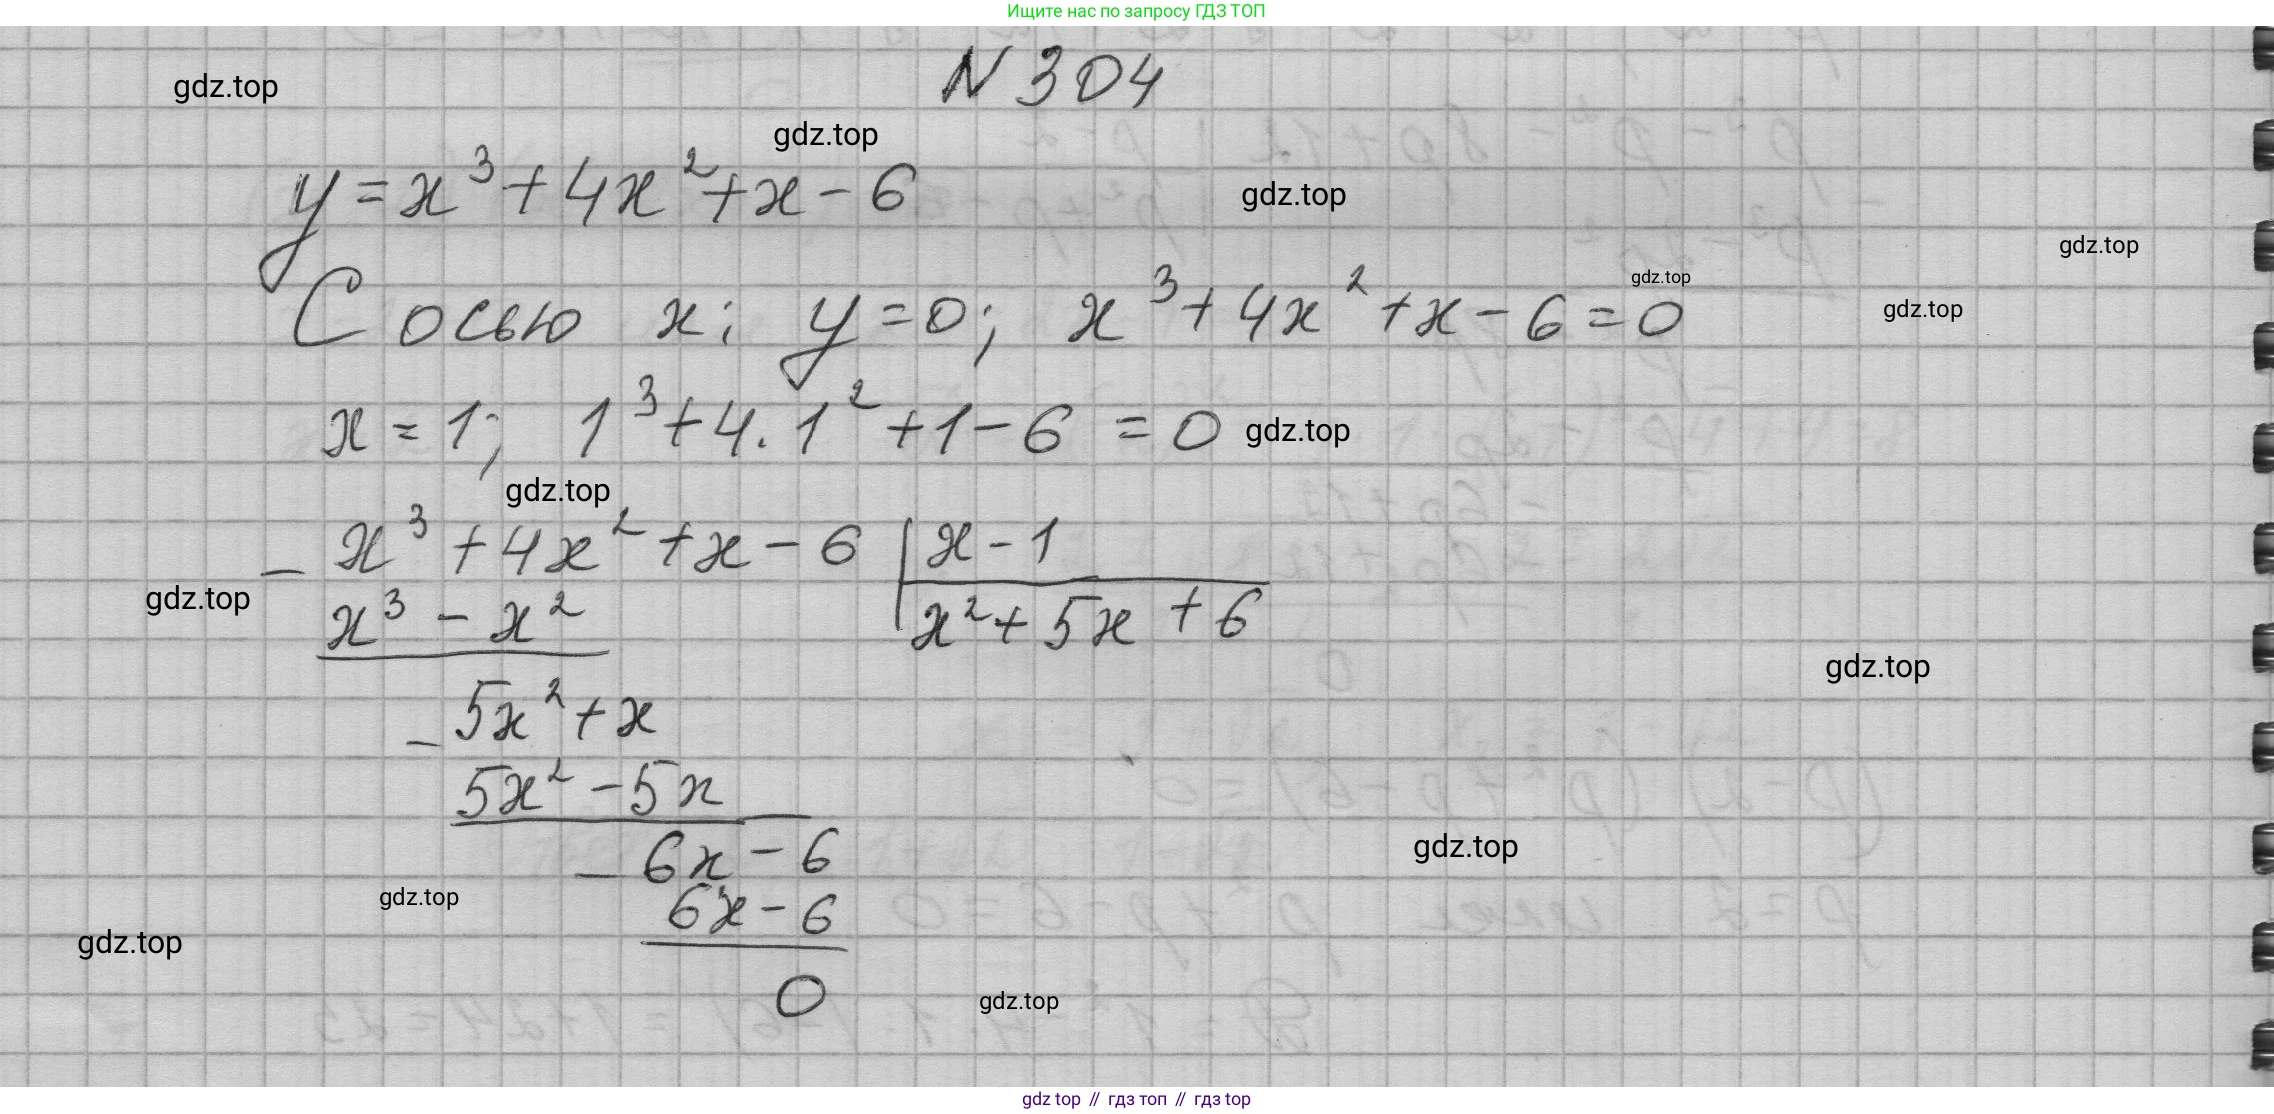 Ищите нас по запросу ГДЗ ТОП
N 304
gdz.top
gdz.top
y = x³ + 4x² + x - 6
gdz.top
gdz.top
С осью x: y = 0; x³ + 4x² + x - 6 = 0
gdz.top
gdz.top
x = 1; 1³ + 4 · 1² + 1 - 6 = 0
gdz.top
gdz.top
- x³ + 4x² + x - 6 | x - 1
gdz.top
x³ - x² | x² + 5x + 6
gdz.top
- 5x² + x
5x² - 5x
- 6x - 6
gdz.top
gdz.top
6x - 6
gdz.top
0
gdz.top
gdz top // гдз топ // гдз top